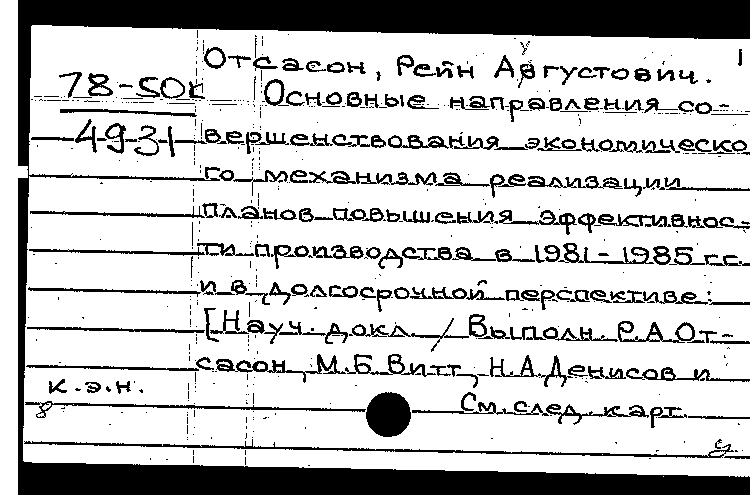 1
Отсасон, Рейн Августович.
у
78-50к
4931
Основные направления со-
вершенствования экономическо
го механизма реализации
планов повышения эффективнос-
ти производства в 1981-1985 гг.
и в долгосрочной перспективе:
[Науч. докл. / Выполн. Р.А.От-
сасон, М.Б.Витт, Н.А.Денисов и
к.э.н.
См. след. карт.
8
у